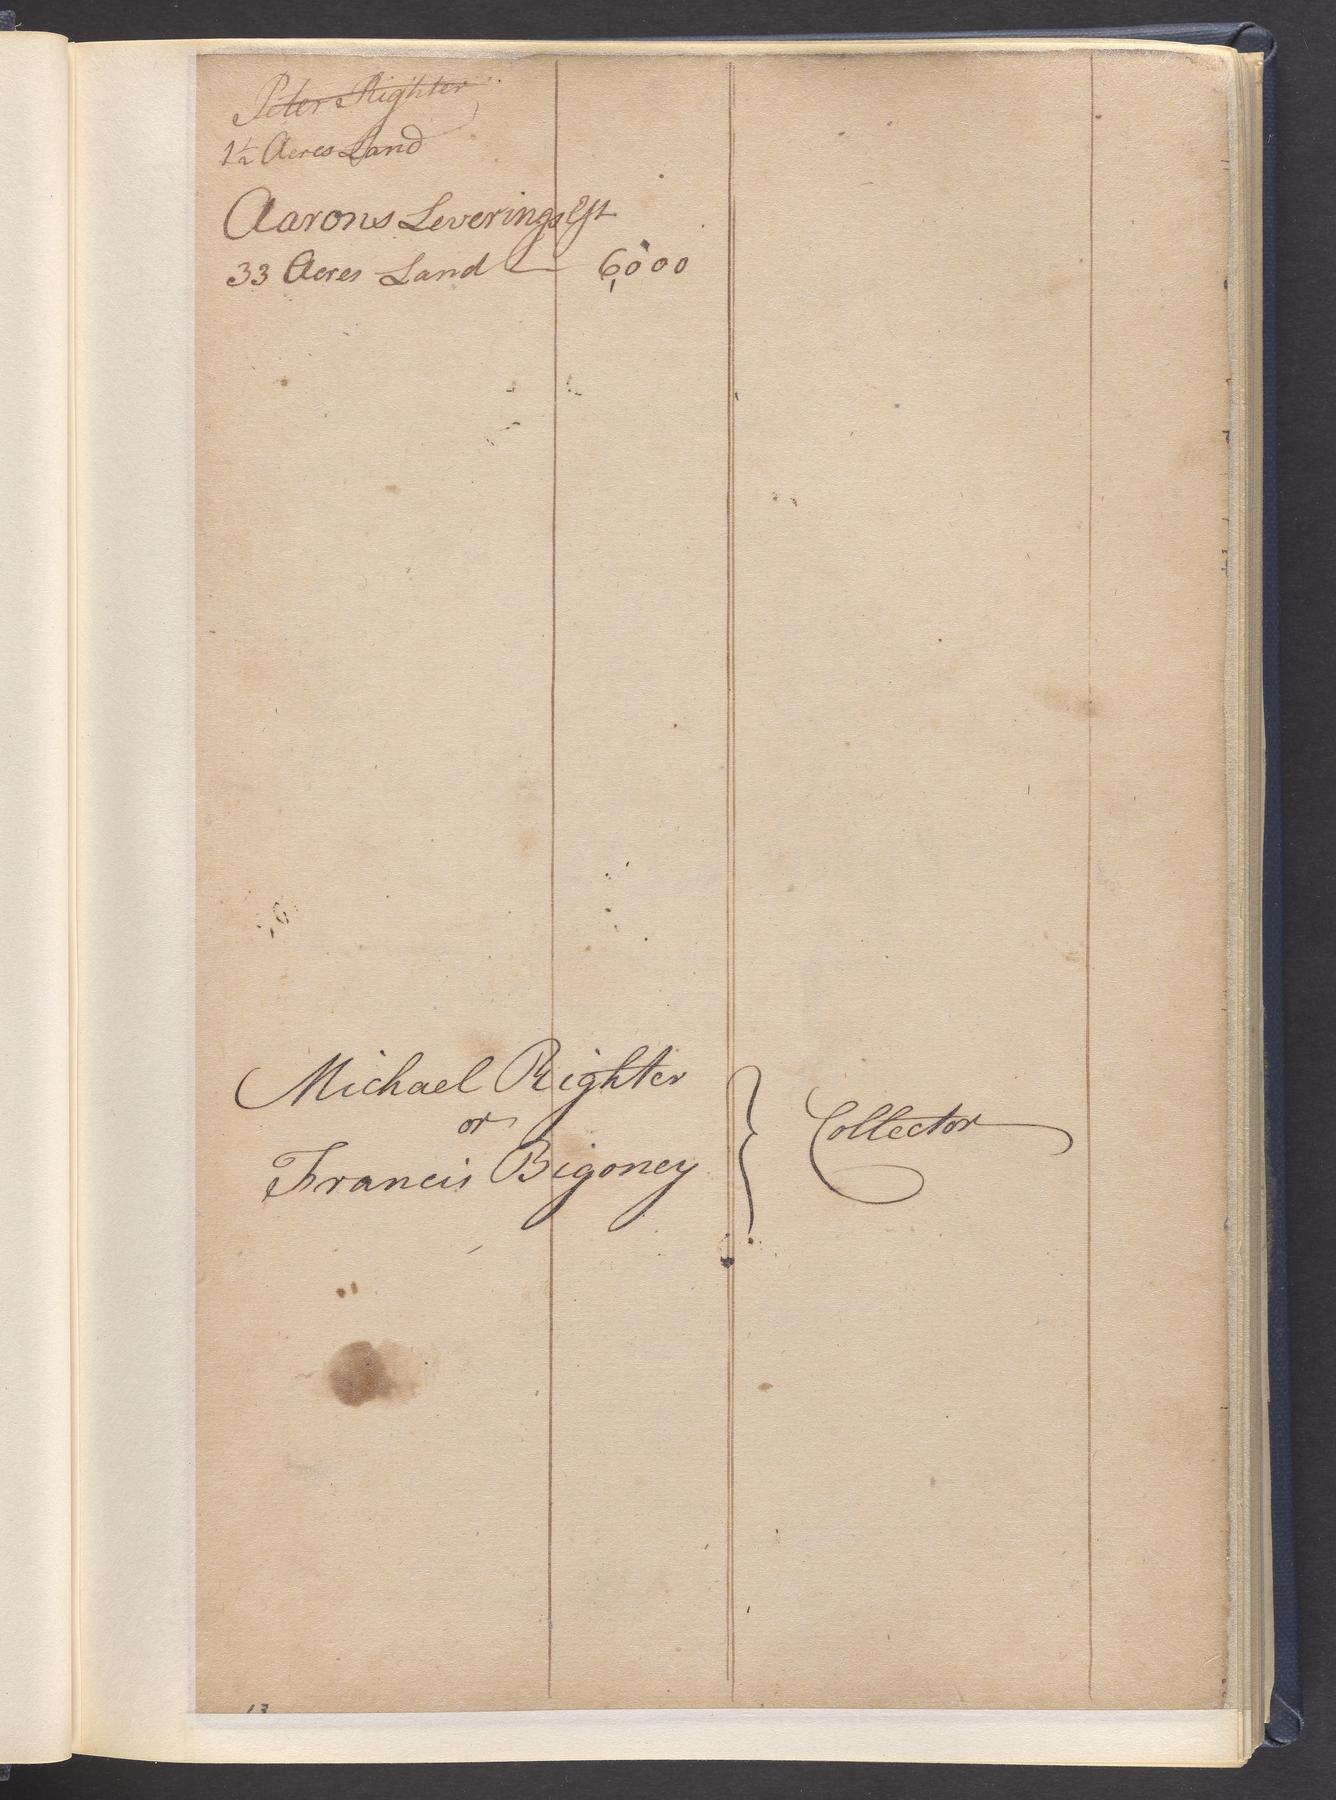 Peter Righter
1½ Acres Land
Aarons Leverings Est
33 Acres Land — 6,000
Michael Righter
or
Francis Bigoney } Collector
13